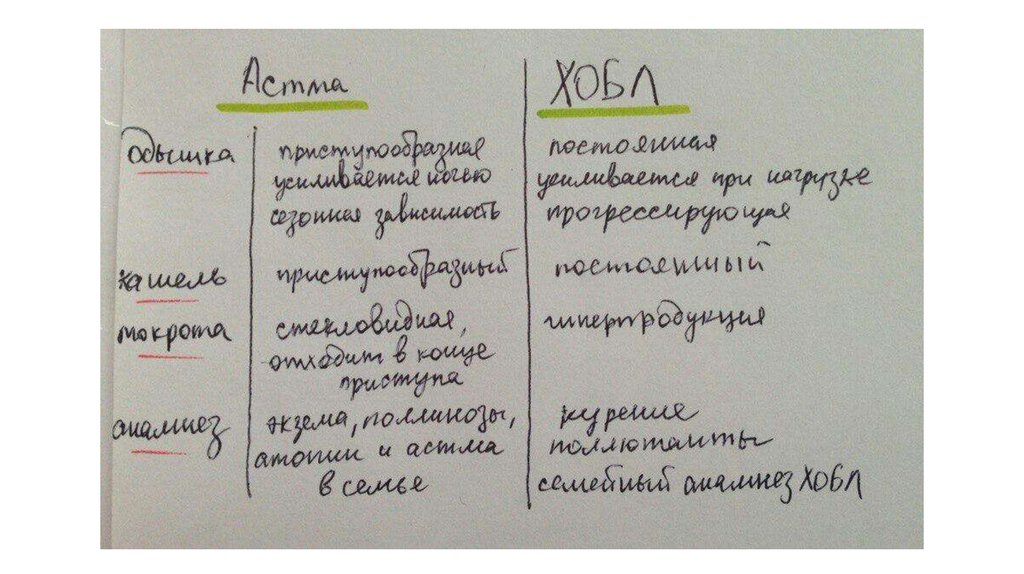 Астма ХОБЛ
одышка приступообразная постоянная
усиливается ночью усиливается при нагрузке
сезонная зависимость прогрессирующая
кашель приступообразный постоянный
мокрота стекловидная, гиперпродукция
отходит в конце
приступа
анамнез экзема, поллинозы, курение
атопии и астма поллютанты
в семье семейный анамнез ХОБЛ